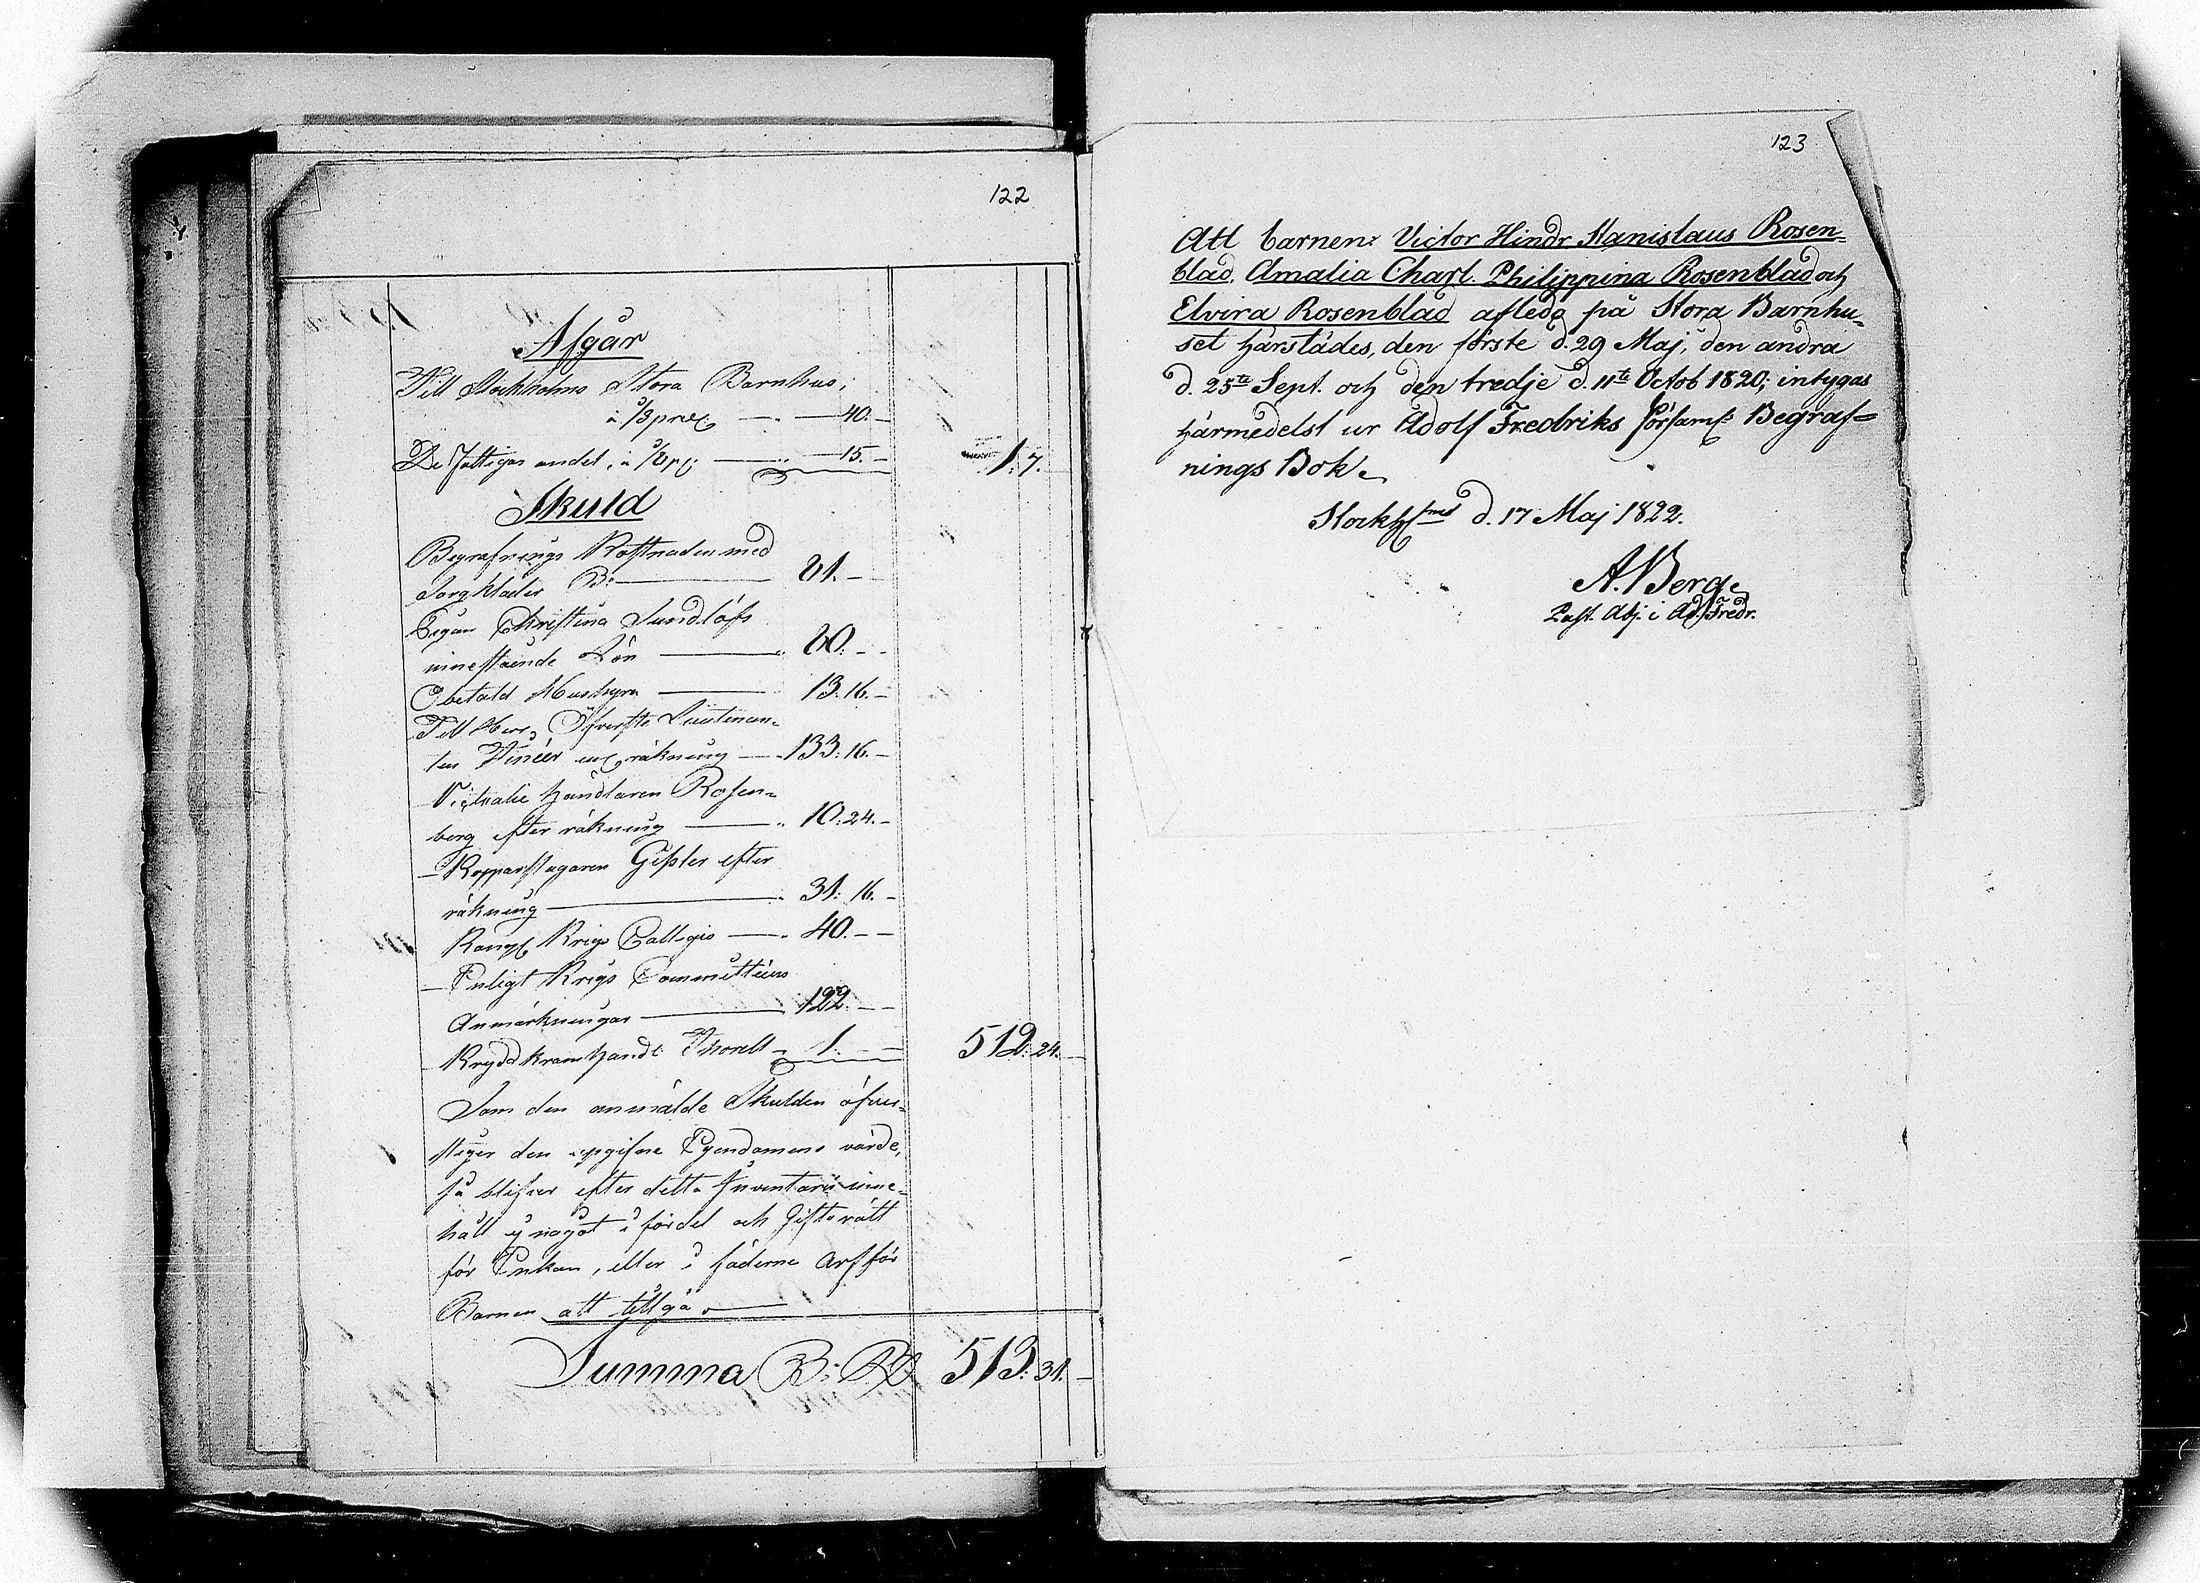 122
Afgår
Till Stockholms Stora Barnhus,
à 1/3 proC — 40.-
De Fattigas andel, à 1/8 pC — 15.- 1.7.
Skuld
Begrafnings Kostnaden med
Sorgkläder B: — 81.-
Pigan Christina Sundlöfs
innestående Lön — 80.--
Obetald Hushyra — 13.16.-
Till Herr Öfverste Lieutenan-
ten räkning — 133.16.-
Victualie handlaren Rosen-
berg efter räkning — 10.24.-
Kopparslagaren Gissler efter
räkning — 31.16.-
Kongl Krigs Collegio — 40.--
Enligt Krigs Committéens
Anmärkningar — 122.--
Kryddkramhandl. Thorell - 1.-- 512.24.-
Som den anmälde Skulden öfver-
stiger den upgifne Egendomens värde,
så blifver efter detta Inventarii inne-
håll ej något i fördel och Giftorätt
för Enkan, eller i fäderne Arf för
Barnen att tillgå.
Summa B: Rd 513.31.-
123
Att barnen: Victor Hindr Stanislaus Rosen-
blad, Amalia Charl. Philippina Rosenblad och
Elvira Rosenblad aflede på Stora Barnhu-
set härstädes, den förste d. 29 Maj, den andra
d. 25te Sept. och den tredje d. 11te Octob 1820; intygas
härmedelst ur Adolf Fredriks Församl: Begraf-
nings Bok.
Stockhlms d. 17 Maj 1822.
A. Berg
Past. Adj. i Ad. Fredr.